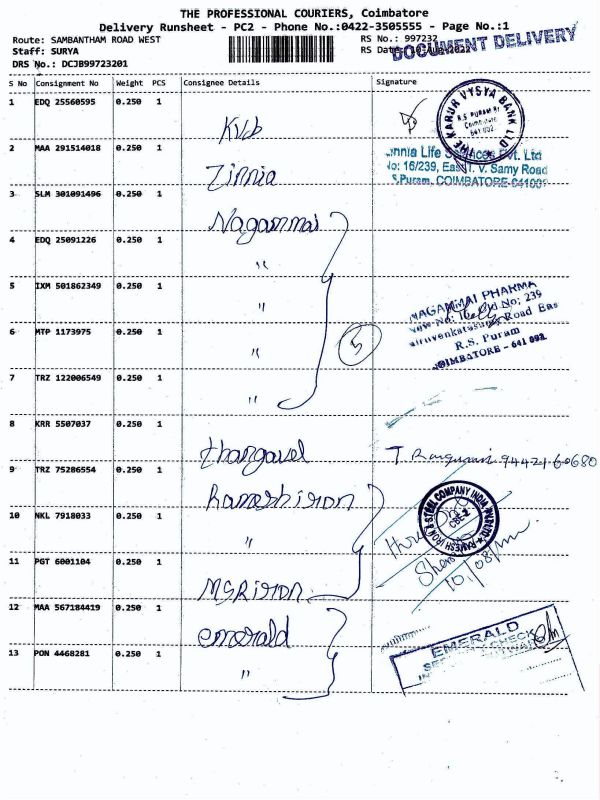 THE PROFESSIONAL COURIERS, Coimbatore
Delivery Runsheet - PC2 - Phone No.:0422-3505555 - Page No.:1
Route: SAMBANTHAM ROAD WEST RS No.: 997232
Staff: SURYA RS Date:
DOCUMENT DELIVERY
DRS No.: DCJB99723201
S No Consignment No Weight PCS Consignee Details Signature
1 EDQ 25560595 0.250 1 KVb
THE KARUR VYSYA BANK LTD
R.S. PURAM Br
Coimbatore
641 002
2 MAA 291514018 0.250 1 Zinnia
Life Pvt. Ltd
No: 16/239, East T. V. Samy Road
R.S.Puram, COIMBATORE-641002
3 SLM 301091496 0.250 1 Nagammai
4 EDQ 25091226 0.250 1 "
5 IXM 501862349 0.250 1 "
NAGAMMAI PHARMA
No; 239
Road Eas
R.S. Puram
COIMBATORE - 641 002
6 MTP 1173975 0.250 1 " 5
7 TRZ 122006549 0.250 1 "
8 KRR 5507037 0.250 1 thangavel
T. 94421-60680
9 TRZ 75286554 0.250 1 Ramesh iron
10 NKL 7918033 0.250 1 "
RAMESH IRON & STEEL COMPANY INDIA
CBE-2
10/08/
11 PGT 6001104 0.250 1 MSR iron
12 MAA 567184419 0.250 1 emerald
EMERALD
13 PON 4468281 0.250 1 "